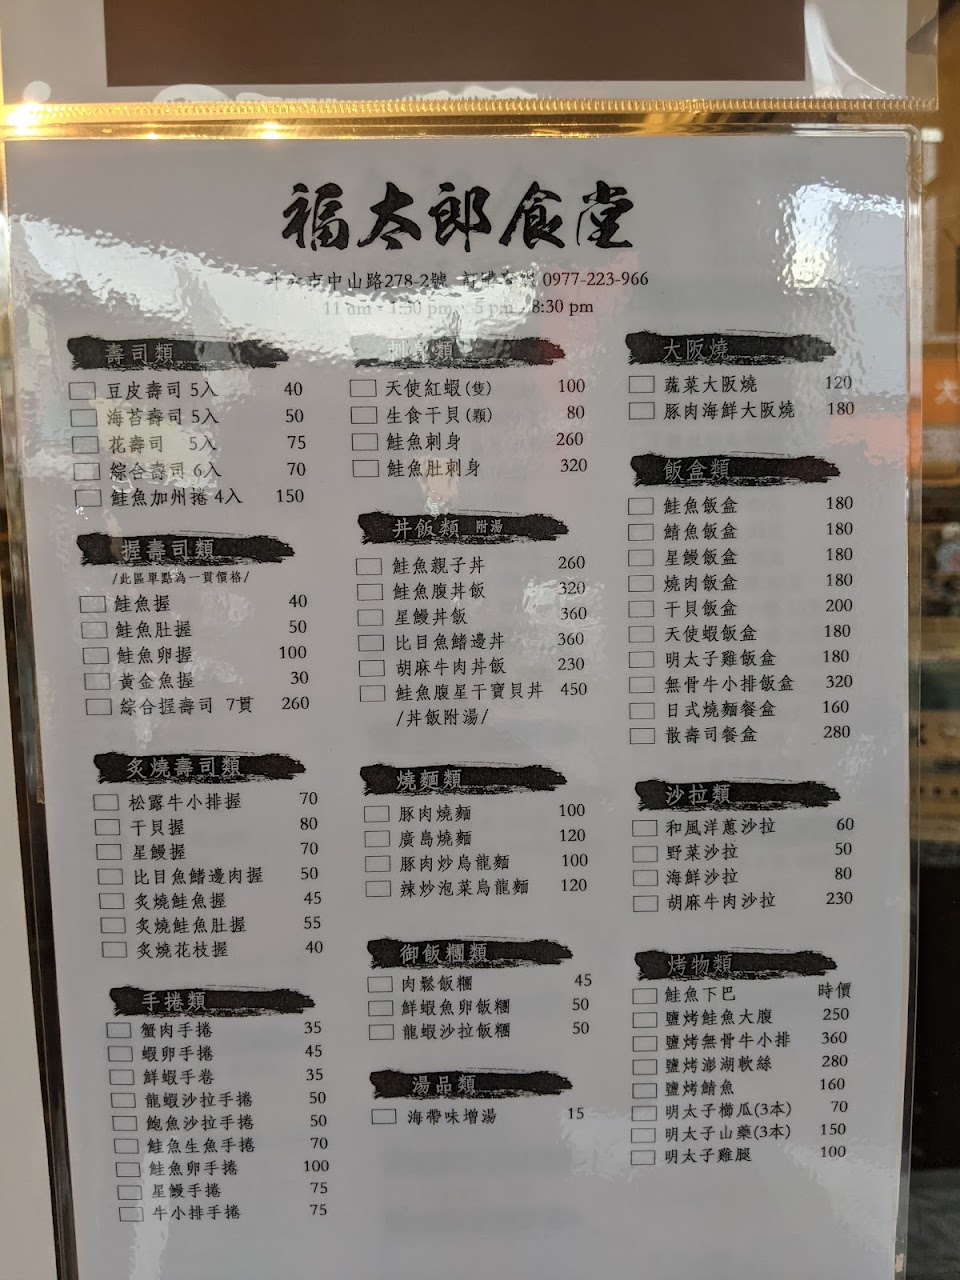 福太郎食堂
市中山路278-2號 0977-223-966
11 am - 1:30 pm 5 pm - 8:30 pm
壽司類
豆皮壽司 5入 40
海苔壽司 5入 50
花壽司 5入 75
綜合壽司 6入 70
鮭魚加州捲 4入 150
握壽司類
/此區單點為一貫價格/
鮭魚握 40
鮭魚肚握 50
鮭魚卵握 100
黃金魚握 30
綜合握壽司 7貫 260
炙燒壽司類
松露牛小排握 70
干貝握 80
星鰻握 70
比目魚鰭邊肉握 50
炙燒鮭魚握 45
炙燒鮭魚肚握 55
炙燒花枝握 40
手捲類
蟹肉手捲 35
蝦卵手捲 45
鮮蝦手卷 35
龍蝦沙拉手捲 50
鮑魚沙拉手捲 50
鮭魚生魚手捲 70
鮭魚卵手捲 100
星鰻手捲 75
牛小排手捲 75
刺身類
天使紅蝦(隻) 100
生食干貝(顆) 80
鮭魚刺身 260
鮭魚肚刺身 320
丼飯類 附湯
鮭魚親子丼 260
鮭魚腹丼飯 320
星鰻丼飯 360
比目魚鰭邊丼 360
胡麻牛肉丼飯 230
鮭魚腹星干寶貝丼 450
/丼飯附湯/
燒麵類
豚肉燒麵 100
廣島燒麵 120
豚肉炒烏龍麵 100
辣炒泡菜烏龍麵 120
御飯糰類
肉鬆飯糰 45
鮮蝦魚卵飯糰 50
龍蝦沙拉飯糰 50
湯品類
海帶味增湯 15
大阪燒
蔬菜大阪燒 120
豚肉海鮮大阪燒 180
飯盒類
鮭魚飯盒 180
鯖魚飯盒 180
星鰻飯盒 180
燒肉飯盒 180
干貝飯盒 200
天使蝦飯盒 180
明太子雞飯盒 180
無骨牛小排飯盒 320
日式燒麵餐盒 160
散壽司餐盒 280
沙拉類
和風洋蔥沙拉 60
野菜沙拉 50
海鮮沙拉 80
胡麻牛肉沙拉 230
烤物類
鮭魚下巴 時價
鹽烤鮭魚大腹 250
鹽烤無骨牛小排 360
鹽烤澎湖軟絲 280
鹽烤鯖魚 160
明太子櫛瓜(3本) 70
明太子山藥(3本) 150
明太子雞腿 100